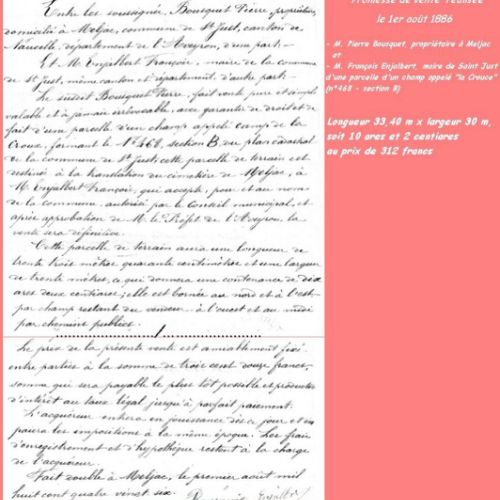 Entre les soussignés, Bousquet Pierre, propriétaire,
domicilié à Meljac, commune de St Just, canton de
Naucelle, département de l'Aveyron, d'une part.
Et M. Enjalbert François, maire de la commune
de St Just, même canton et département, d'autre part.
Le susdit Bousquet Pierre, fait vente pure et simple
valable et à jamais irrévocable, avec garantie de droit et de
fait d'une parcelle d'un champ appelé camp de la
Croux, formant le No 468, section B, du plan cadastral
de la commune de St Just, cette parcelle de terrain est
destinée à la translation du cimetière de Meljac, à
M. Enjalbert François, qui accepte, pour et au nom
de la commune, autorisé par le Conseil municipal, et
après approbation de M. le Préfet de l'Aveyron, la
vente sera définitive.
Cette parcelle de terrain aura une longueur de
trente trois mètres quarante centimètres et une largeur
de trente mètres, ce qui donnera une contenance de dix
ares deux centiares; elle est bornée au nord et à l'est
par champ restant du vendeur, à l'ouest et au midi
par chemins publics.
Le prix de la présente vente est amiablement fixé
entre parties à la somme de trois cent douze francs,
somme qui sera payable le plus tôt possible et productive
d'intérêt au taux légal jusqu'à parfait paiement.
L'acquéreur entrera en jouissance dès ce jour et en
paiera les impositions à la même époque. Les frais
d'enregistrement et d'hypothèque restent à la charge
de l'acquéreur.
Fait double à Meljac, le premier août mil
huit cent quatre vingt six.
Enjalbert
Promesse de vente réalisée
le 1er août 1886
- M. Pierre Bousquet, propriétaire à Meljac
et
- M. François Enjalbert, maire de Saint Just
d'une parcelle d'un champ appelé "la Crouce"
(n°468 - section B)
Longueur 33,40 m x largeur 30 m,
soit 10 ares et 2 centiares
au prix de 312 francs